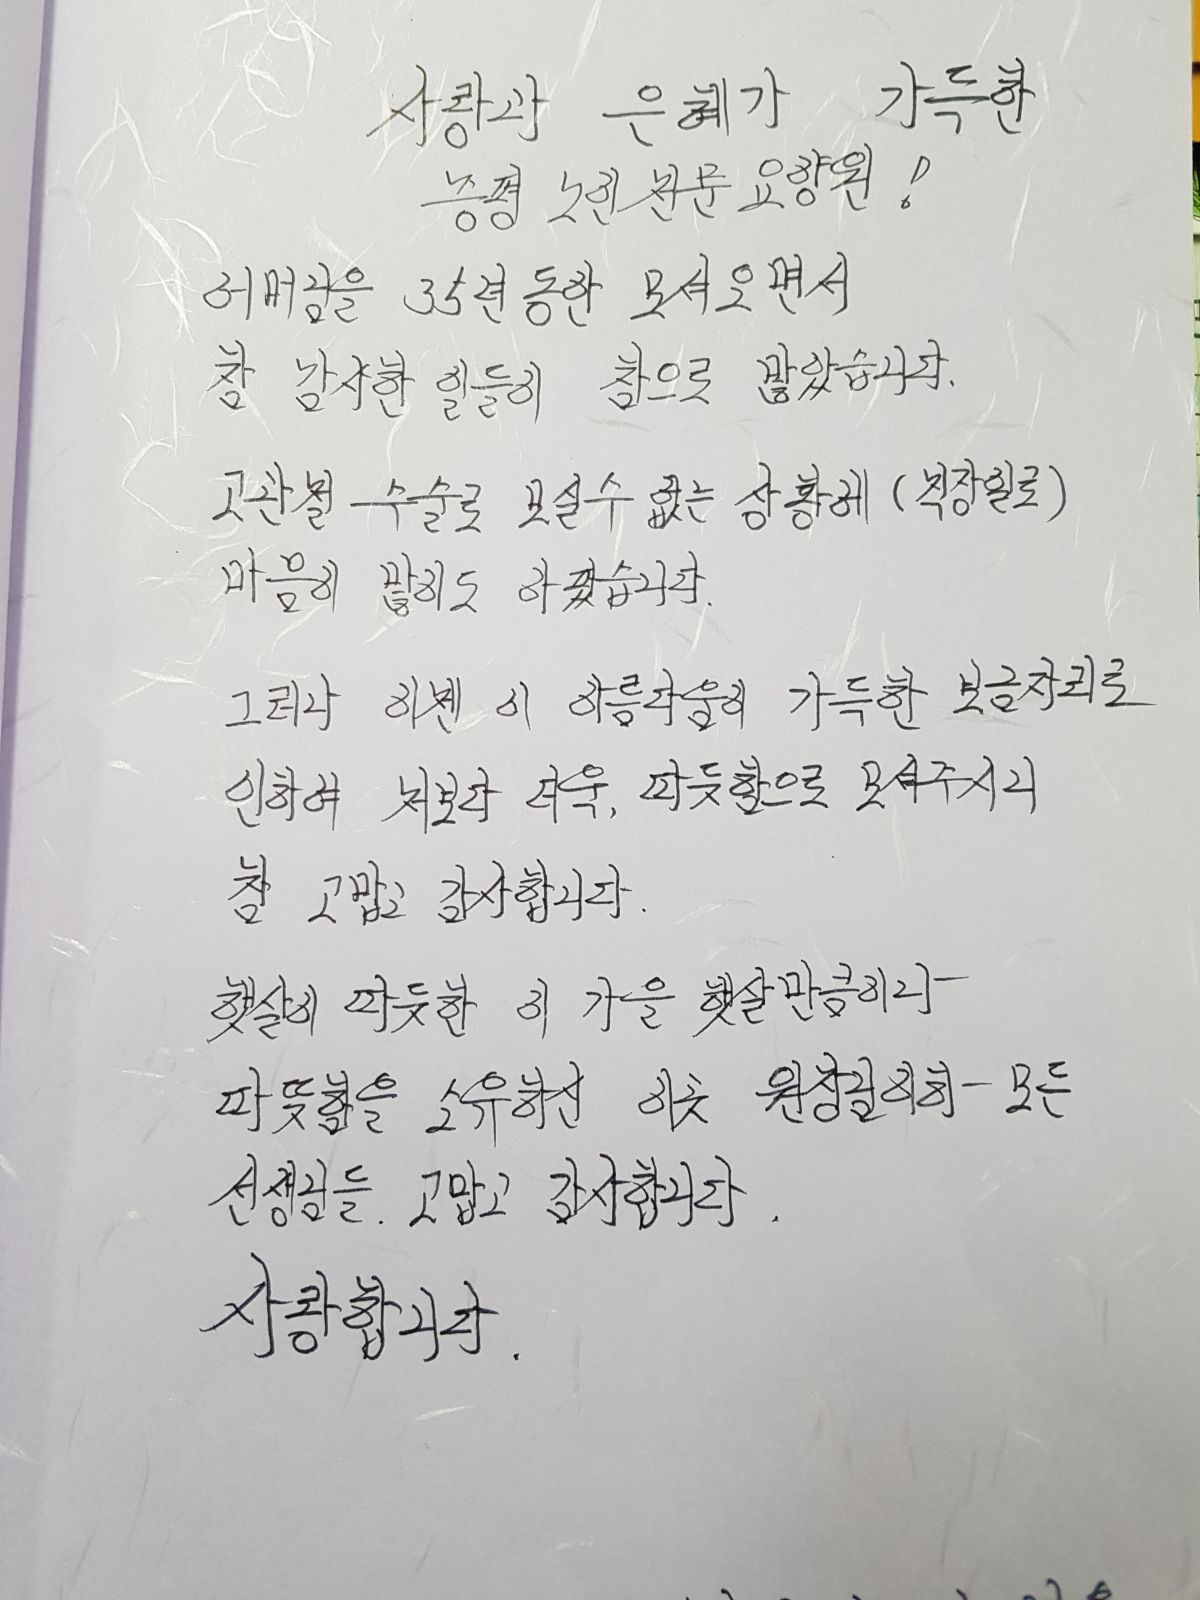 사랑과 은혜가 가득한
증평 노인전문요양원!
어머님을 35년동안 모셔오면서
참 감사한 일들이 참으로 많았습니다.
고관절 수술로 모실수 없는 상황에 (직장일로)
마음이 많이도 아팠습니다.
그러나 이젠 이 아름다움이 가득한 보금자리로
인하여 저보다 더욱, 따듯함으로 모셔주시니
참 고맙고 감사합니다.
햇살이 따듯한 이 가을 햇살만큼이나-
따뜻함을 소유하신 이곳 원장님이하- 모든
선생님들. 고맙고 감사합니다.
사랑합니다.